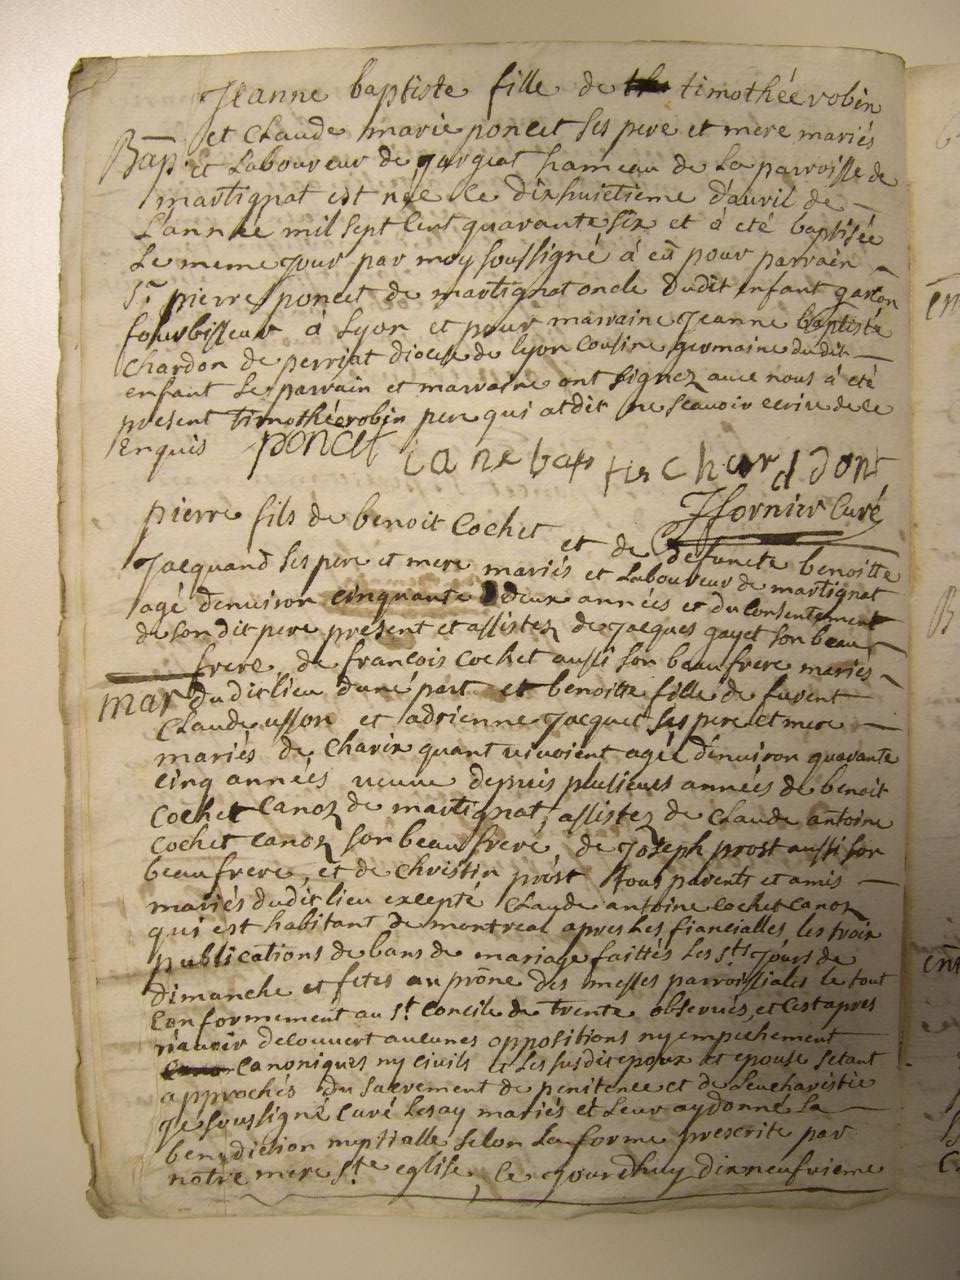 Jeanne baptiste fille de timothée robin
et Claude marie poncet ses pere et mere mariés
Bap. et Laboureur de gurgeat hameau de La parroisse de
martignat est née le dixhuictieme d'auril de
L'année mil sept cent quarante six et à eté baptisée
Le meme jour par moy soussigné à eû pour parrain
Sr. pierre poncet de martignat oncle dudit enfant garçon
fourbisseur à Lyon et pour marraine Jeanne baptiste
Chardon de perriat diocese de lyon cousine germaine dudit
enfant Les parrain et marraine ont signez auec nous à eté
present timothée robin pere qui at dit ne scauoir ecrire de ce
enquis poncet iane baptis charddont
Jfornier Curé
pierre fils de benoit Cochet et de defuncte benoitte
Jacquand ses pere et mere mariés et Laboureur de martignat
agé denuiron cinquante deux années et du consentement
de son dit pere present et assistez de Jacques gayet son beau
frere, de francois Cochet aussi son beaufrere mariés
mar dudit lieu d'une part et benoitte fille de furent
Claude usson et adrienne Jacquet ses pere et mere
mariés de Charix quant viuoient agée denuiron quarante
cinq années veuue depuis plusieurs années de benoit
Cochet Canoz de martignat, assistez de Claude antoine
Cochet canoz son beaufrere, de Joseph prost aussi son
beaufrere, et de christin prost tous parents et amis
mariés dudit lieu excepté Claude antoine cochet canoz
qui est habitant de montreal apres Les fiancialles, les trois
publications de bans de mariage faittés Les sts. Jours de
dimanche et fetes au prône des messes parroissiales le tout
Conformement au st. Concile de trente obserués, et c'est apres
n'auoir decouuert aucunes oppositions ny empechement
canoniques ny ciuils et Les susdits epoux et epouse setant
approchés du sacrement de penitence et de Leucharistie
Je soussigné Curé Les ay mariés et Leur ay donné La
benediction nuptialle selon La forme prescrite par
notre mere ste. eglise, Ce ejourdhuy dixneufuieme